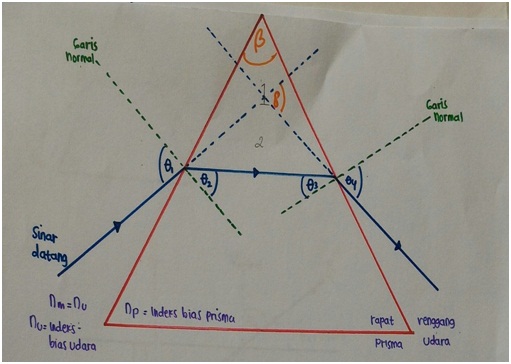 β
Garis
normal
1
β
Garis
Normal
2
θ1
θ2
θ3
θ4
Sinar
datang
nm = nu
nu = Indeks
bias udara
np = Indeks bias prisma
rapat
Prisma
renggang
Udara